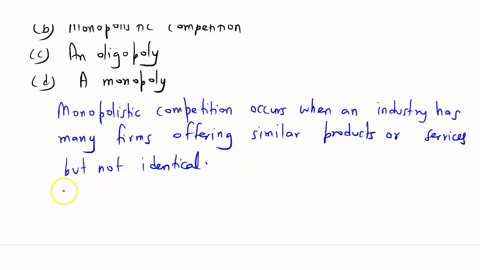 (b) Monopolistic competition
(c) An oligopoly
(d) A monopoly
Monopolistic competition occurs when an industry has
many firms offering similar products or services
but not identical.